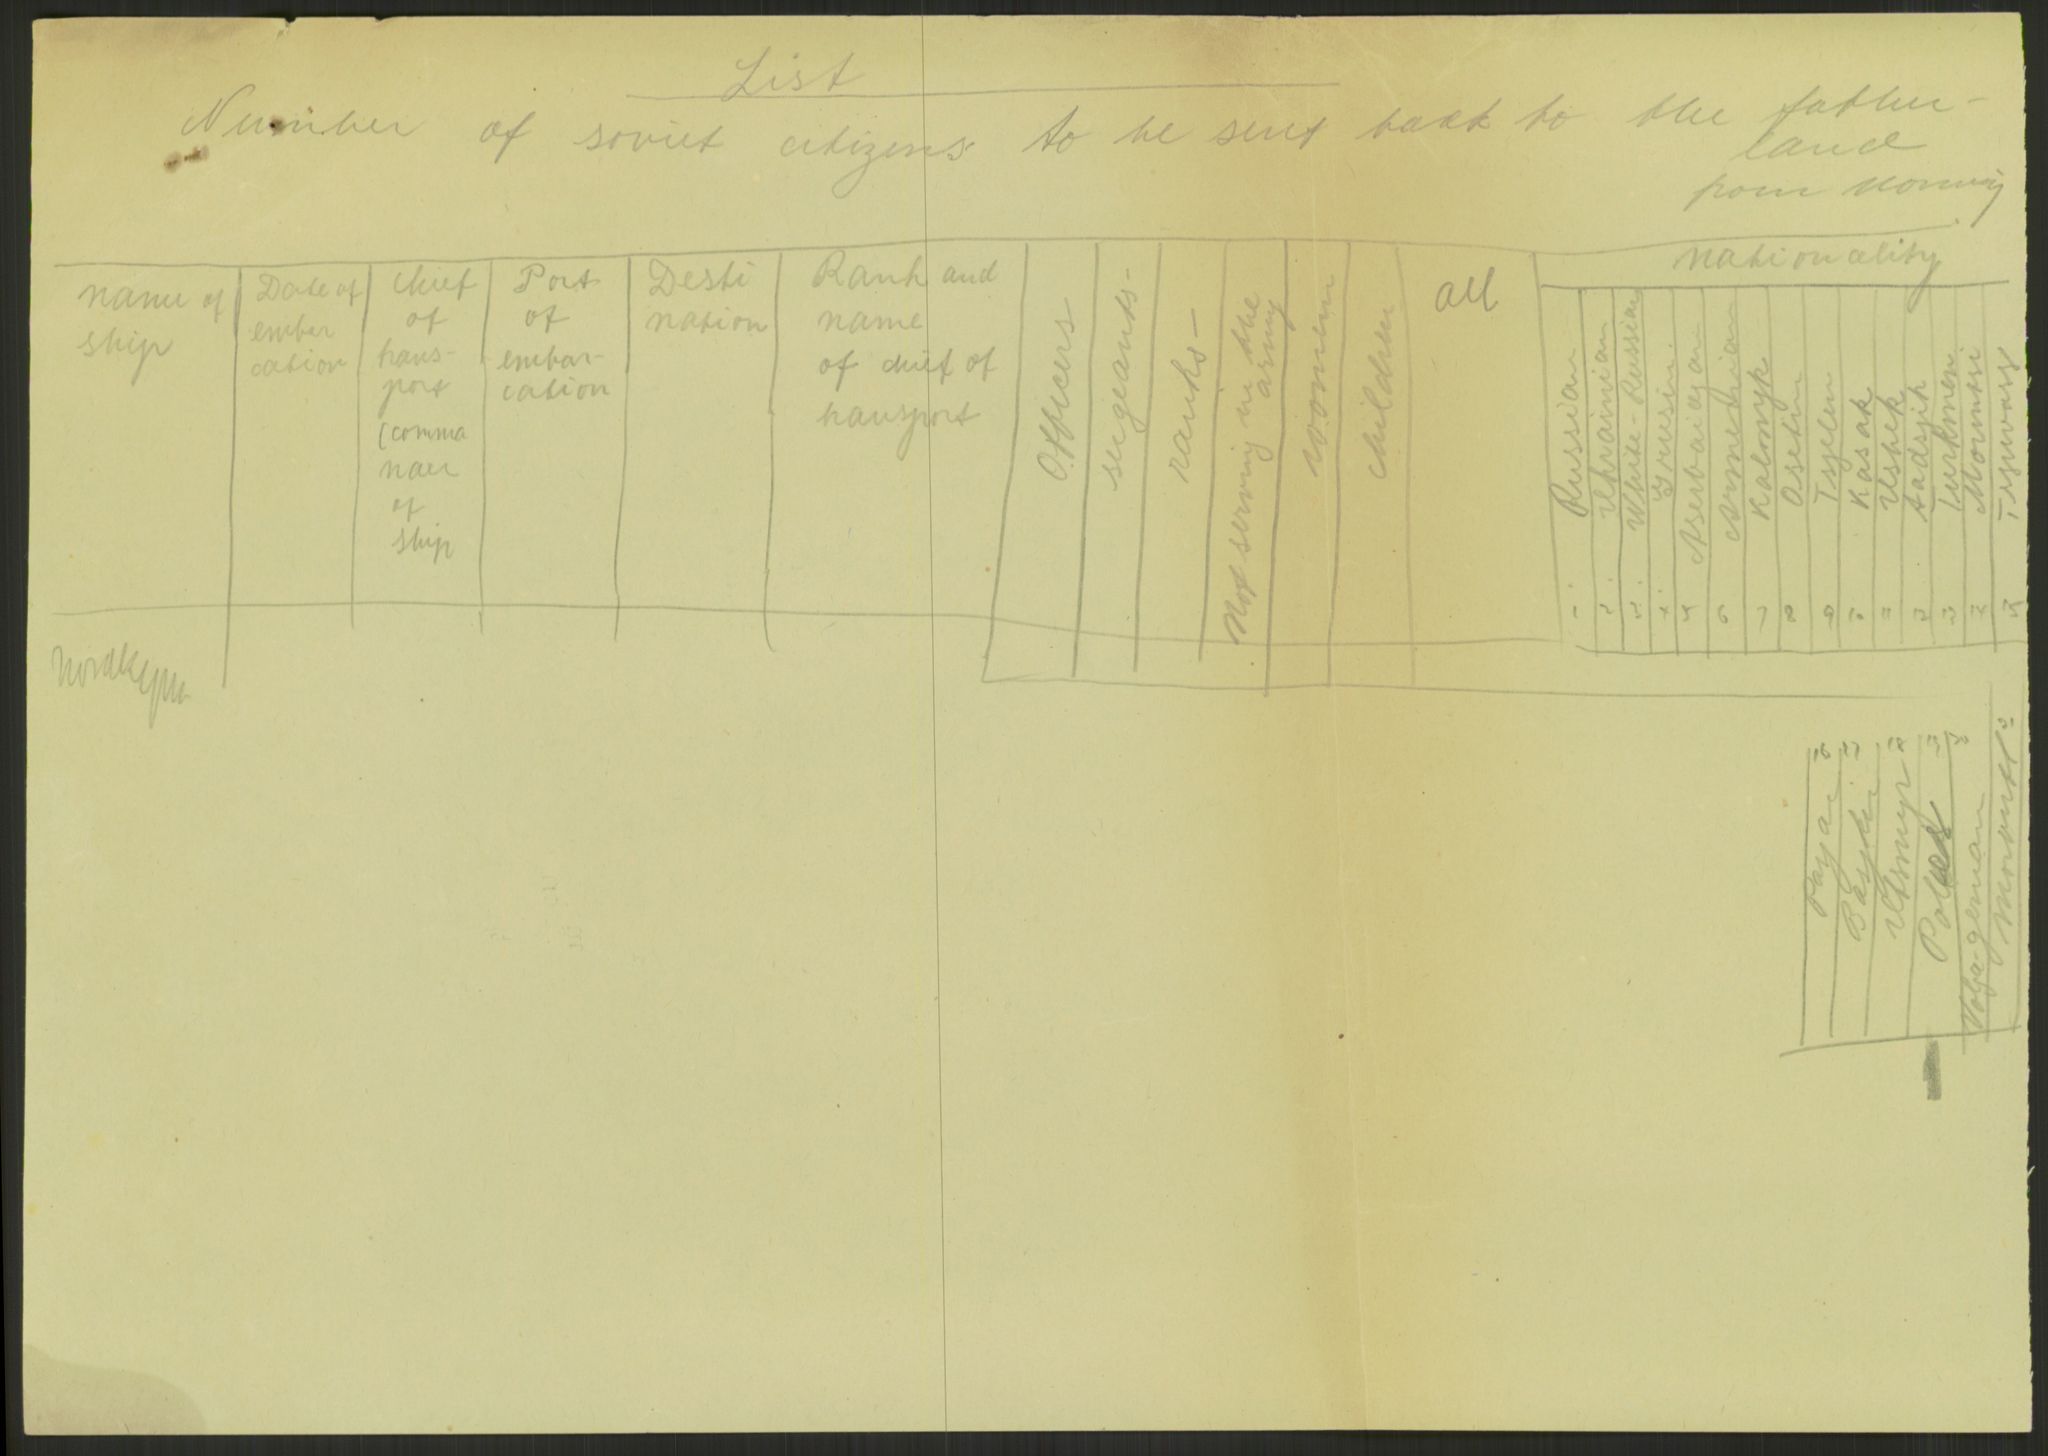 List
Number of soviet citizens to be sent back to the father-
land
from Norway
Name of
ship
Date of
embar
cation
Chief
of
trans-
port
(comma
nder
of
ship
Port
of
embar-
cation
Desti
nation
Rank and
name
of chief of
transport
Officers
sergeants-
ranks-
Not serving in the
army
women
children
all
Nationality
1. Russian
2. Ukrainian
3. White-Russian
4. Grusin
5 Aserbaidjan
6 Armenian
7 Kalmyk
8 Osetin
9
10 Kasak
11 Usbek
12 Tadsjik
13 Turkmen
14
15 Tsjuvasj
Nordkyn
16
17 Basjkir
18
19
20 Volgagerman